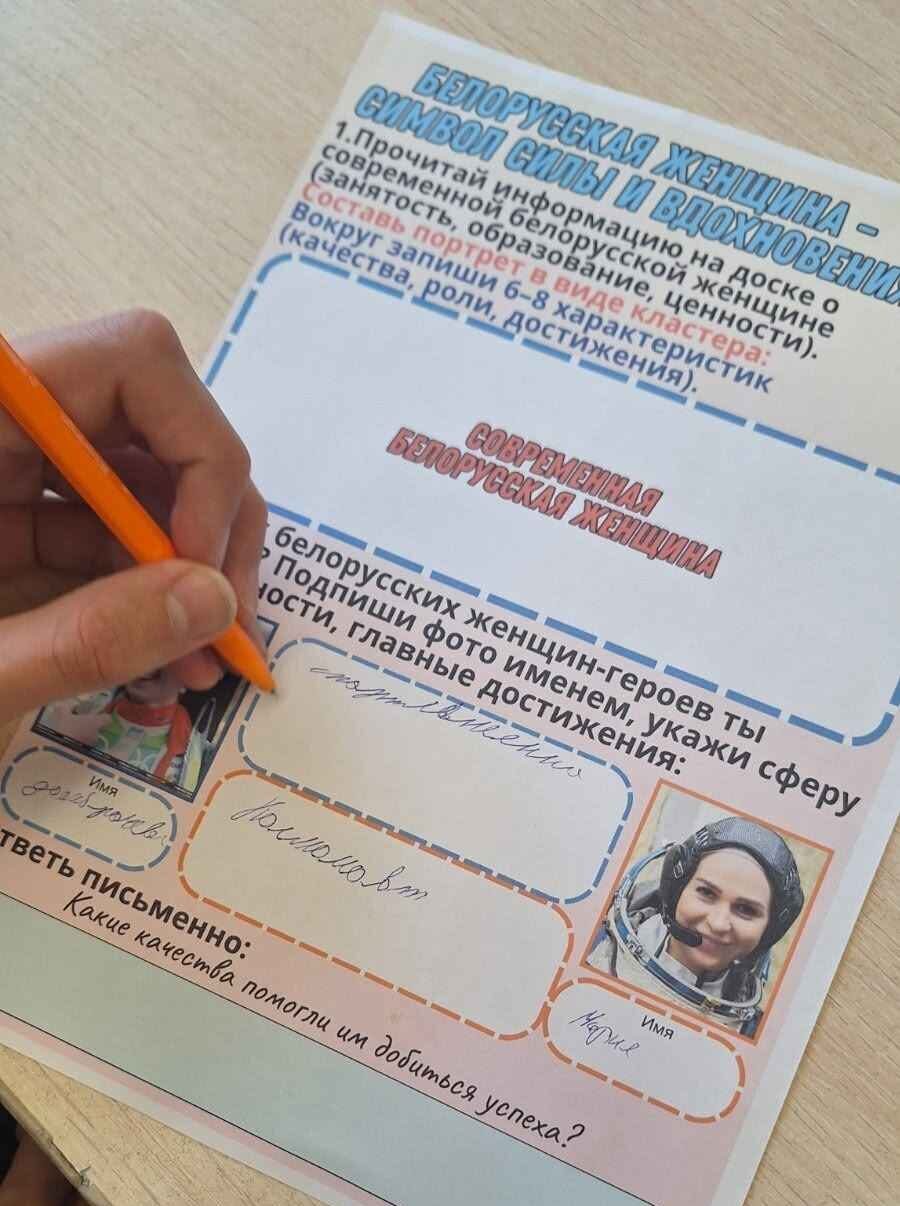 БЕЛОРУССКАЯ ЖЕНЩИНА –
СИМВОЛ СИЛЫ И ВДОХНОВЕНИЯ
1.Прочитай информацию на доске о
современной белорусской женщине
(занятость, образование, ценности).
Составь портрет в виде кластера:
Вокруг запиши 6–8 характеристик
(качества, роли, достижения).
СОВРЕМЕННАЯ
БЕЛОРУССКАЯ ЖЕНЩИНА
белорусских женщин-героев ты
Подпиши фото именем, укажи сферу
ности, главные достижения:
спортсменка
Имя
Космонавт
Имя
Мария
тветь письменно:
Какие качества помогли им добиться успеха?